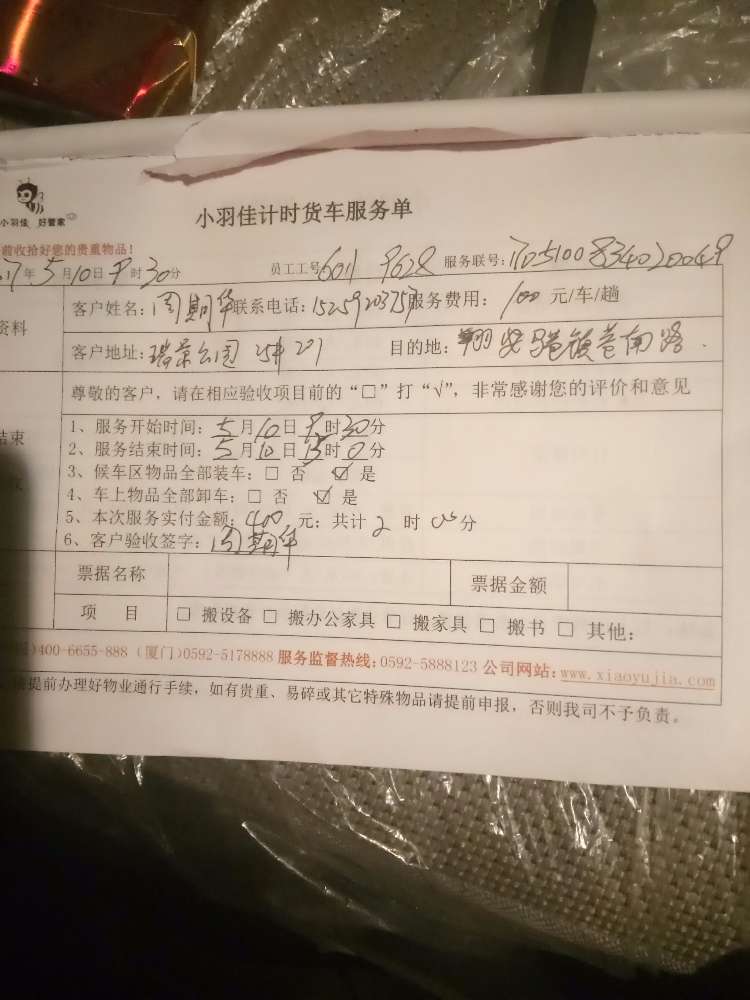 小羽佳 好管家
小羽佳计时货车服务单
前收拾好您的贵重物品!
7年5月10日 时30分 员工工号6011 9628 服务联号:
资料
客户姓名:周期华 联系电话:15259203757 服务费用:100元/车/趟
客户地址:瑞景公园 目的地:翔安 镇巷南路
尊敬的客户,请在相应验收项目前的“□”打“√”,非常感谢您的评价和意见
结束
1、服务开始时间:5月10日 时30分
2、服务结束时间:5月10日15时0分
3、候车区物品全部装车:□ 否 ☑ 是
4、车上物品全部卸车:□ 否 ☑ 是
5、本次服务实付金额:400元;共计2时 分
6、客户验收签字:周期华
票据名称 票据金额
项 目 □ 搬设备 □ 搬办公家具 □ 搬家具 □ 搬书 □ 其他:
)400-6655-888 (厦门)0592-5178888 服务监督热线:0592-5888123 公司网站:www.xiaoyujia.com
请提前办理好物业通行手续,如有贵重、易碎或其它特殊物品请提前申报,否则我司不予负责。